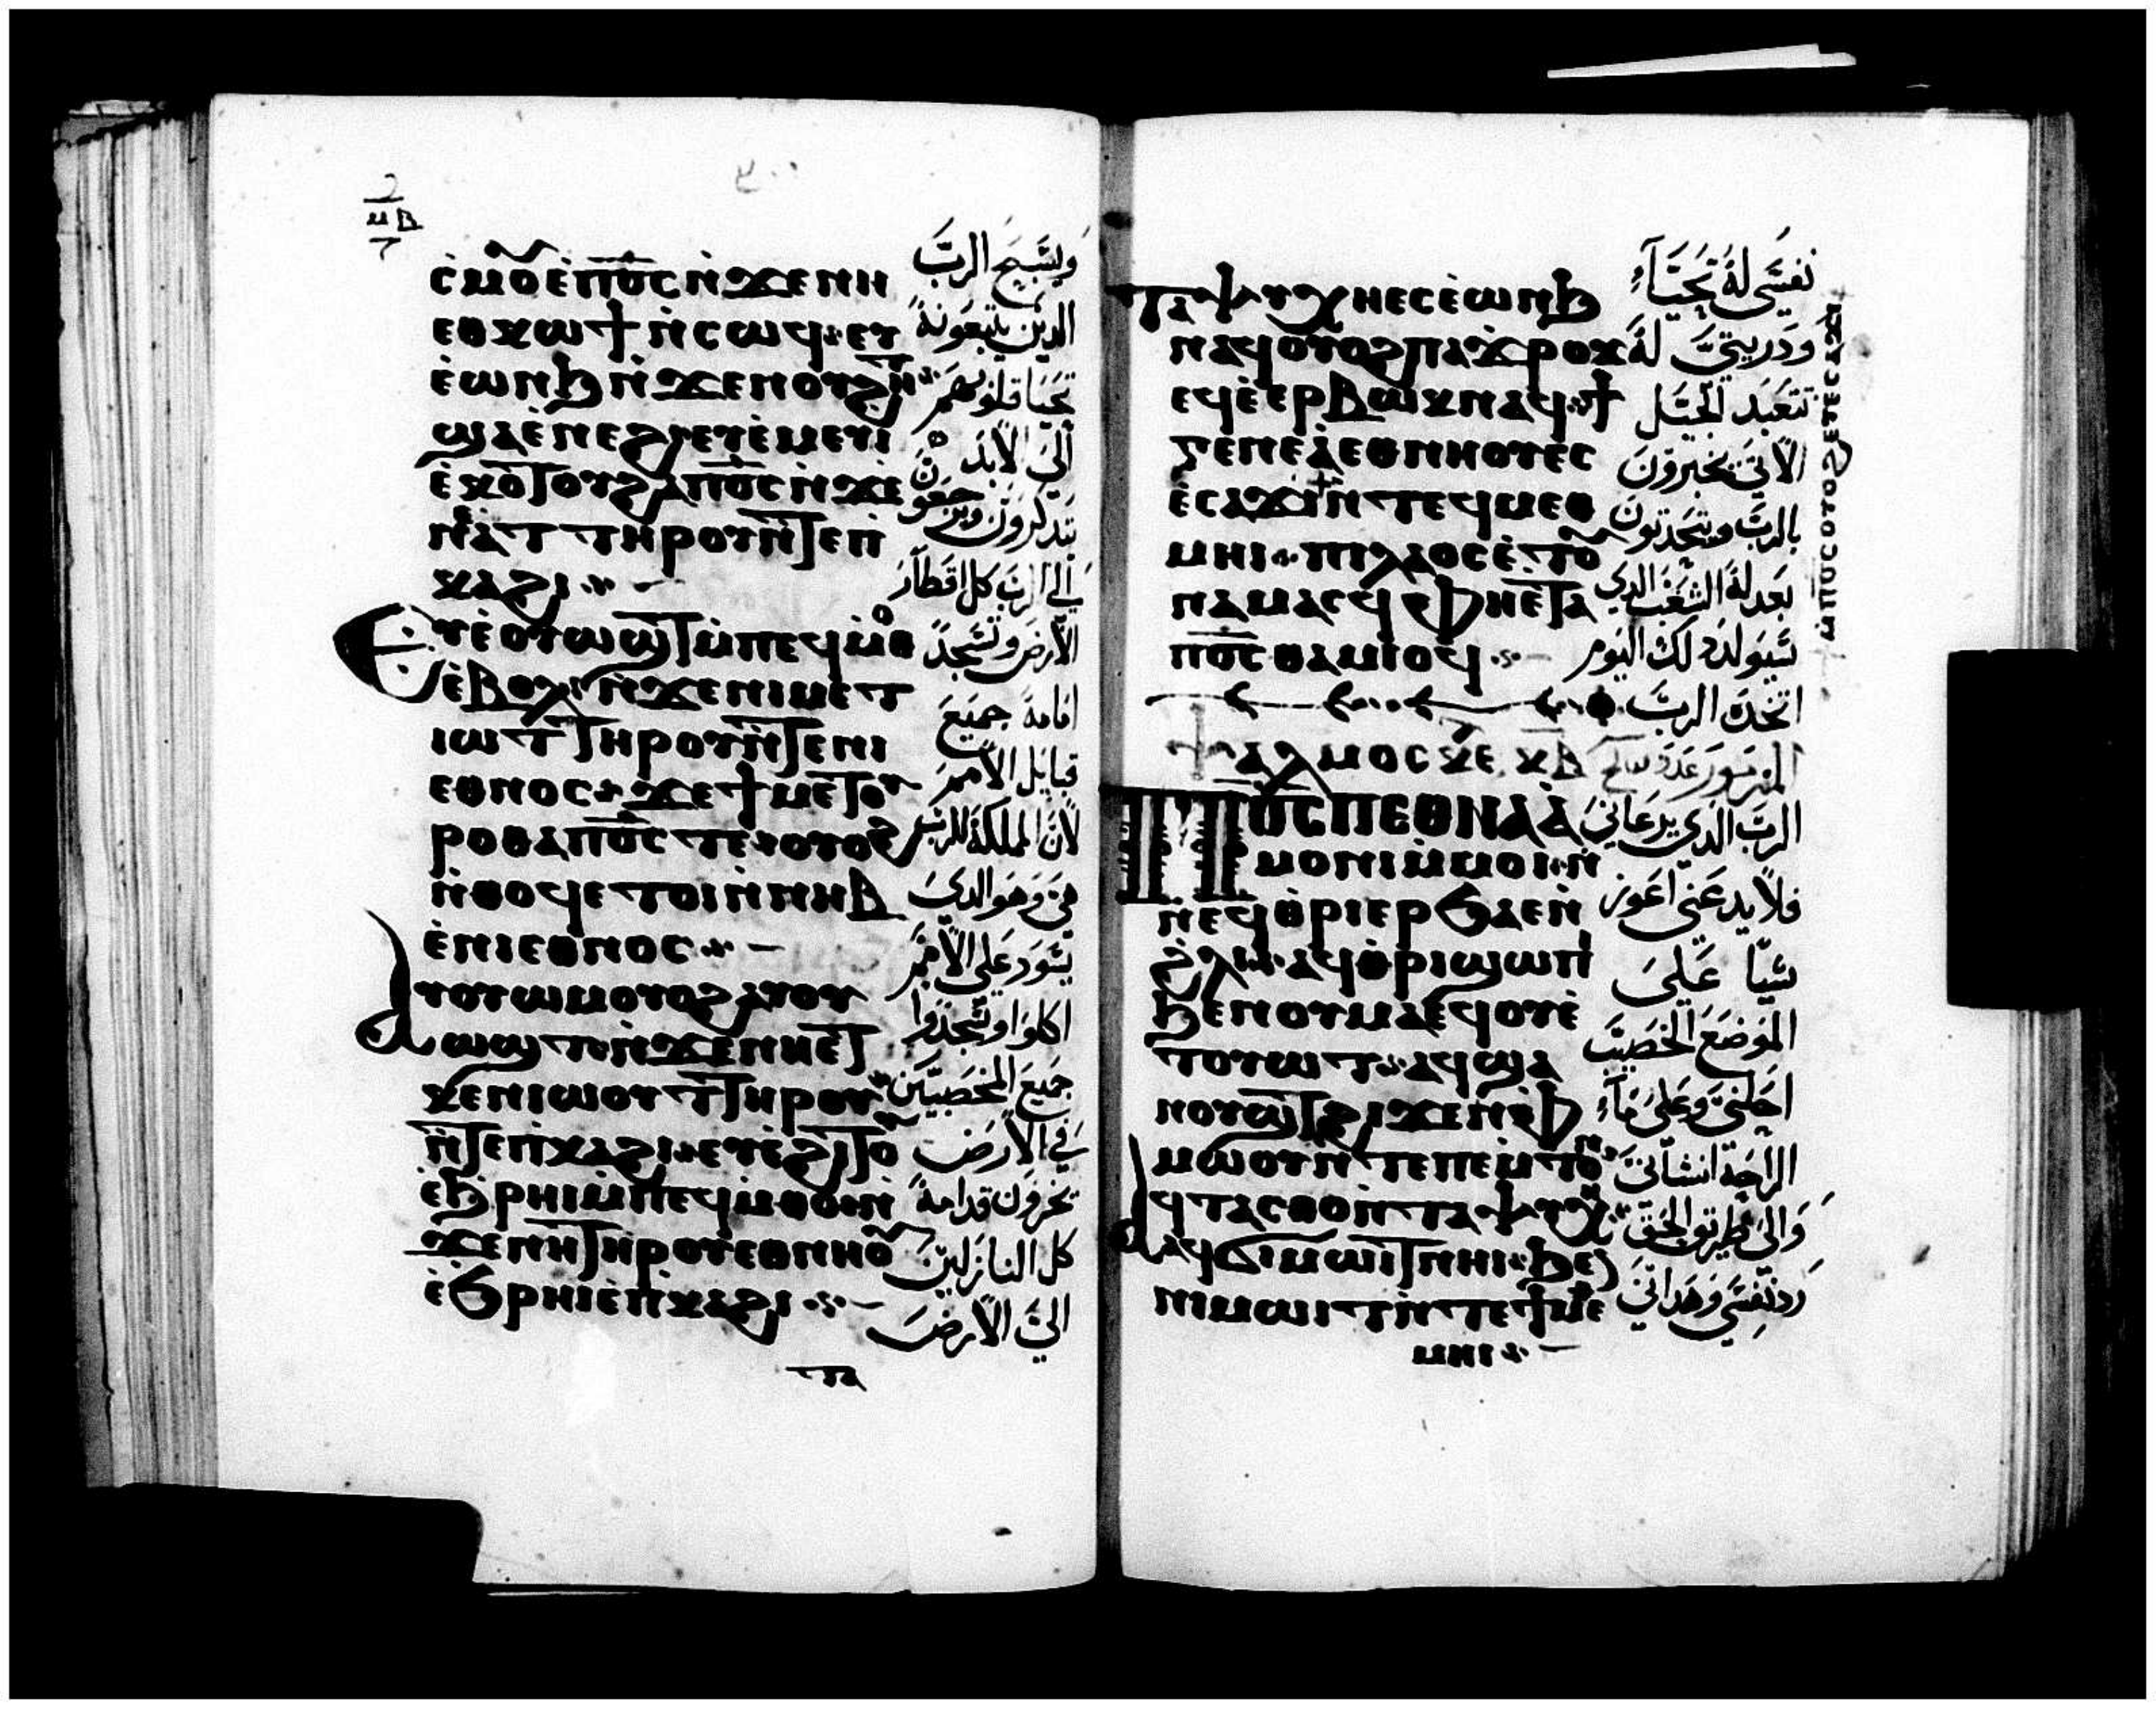 ⲙⲃ
ⲥ̀ⲙⲟ̅ⲉ̀ⲡⲟ̅ⲥ̅ⲛ̀ϫⲉⲛⲏ
ⲉⲑⲕⲱϯⲛ̀ⲥⲱϥ·ⲉⲩ
ⲉ̀ⲱⲛϧⲛ̀ϫⲉⲛⲟⲩϩⲏ̅ⲧ
ϣⲁⲉ̀ⲛⲉϩⲉⲩⲉ̀ⲙⲉⲩⲓ
ⲉ̀ⲕⲟⲧⲟⲩϩⲁⲡⲟ̅ⲥ̅ⲛ̀ϫⲉ
ⲧⲏⲣⲟⲩⲛ̀ⲧⲉⲡ
ⲕⲁϩⲓ··-
ⲉⲩⲉ̀ⲟⲩⲱϣⲧⲙ̀ⲡⲉϥⲙ̀ⲑⲟ
ⲉ̀ⲃⲟⲗⲛ̀ϫⲉⲛⲓⲙⲉⲧ
ⲓⲱⲧⲧⲏⲣⲟⲩⲛ̀ⲧⲉⲛⲓ
ⲉⲑⲛⲟⲥ·ϫⲉϯⲙⲉⲧⲟⲩ
ⲣⲟⲑⲁⲡⲟ̅ⲥ̅ⲧⲉ·ⲟⲩⲟϩ
ⲛ̀ⲑⲟϥⲉⲧⲟⲓⲛ̀ⲛⲏⲃ
ⲉ̀ⲛⲓⲉⲑⲛⲟⲥ··-
ⲁⲩⲟⲩⲱⲙⲟⲩⲟϩⲁⲩⲟⲩ
ⲱϣⲧⲛ̀ϫⲉⲛⲏⲉⲧ
ⲕⲉⲛⲓⲱⲟⲩⲧⲧⲏⲣⲟⲩ
ⲛ̀ⲧⲉⲡⲕⲁϩⲓ·ⲉⲩⲉ̀ϩⲓⲧⲟ̅
ⲉ̀ϧⲣⲏⲓⲙ̀ⲡⲉϥⲙ̀ⲑⲟⲛ̀
ϫⲉⲛⲏⲧⲏⲣⲟⲩⲉⲑⲛⲏⲟ̅
ⲉ̀ϧⲣⲏⲓⲉ̀ⲡⲕⲁϩⲓ··-
ⲧⲁ
ويسبح الرب
الدين يبتغونه
تحيا قلوبهم
الى الابد
يتدكرون ويرجعون
الى الرب كل اقطار
الارض وتسجد
امامه جميع
قبايل الامم
لان المملكة للرب
هي وهو الدى
يسود على الامم
اكلوا وسجدوا
جميع المخصبين
في الارض
تخرون قدامه
كل النازلين
الى الارض
ⲧⲁⲯⲩⲭⲏⲉⲥⲉ̀ⲱⲛϧ
ⲛⲁϥⲟⲩⲟϩⲡⲁϫⲣⲟϫ
ⲉϥⲉ̀ⲉⲣⲃⲱⲕⲛⲁϥ·ϯ
ⲅⲉⲛⲉⲁ̀ⲉⲑⲛⲏⲟⲩⲉⲥ
ⲉ̀ⲥⲁϫⲓⲛ̀ⲧⲉϥⲙⲉⲑ
ⲙⲏⲓ··ⲡⲓⲗⲁⲟⲥⲉ̀ⲧⲟ̅
ⲛⲁⲙⲁⲥϥⲫⲏⲉⲧⲁ
ⲡⲟ̅ⲥ̅ⲑⲁⲙⲓⲟϥ··-
ⲙ̀ⲡⲟⲥⲟⲩⲟϩⲉⲩⲉⲥⲁϫⲓ
ⲯⲁⲗⲙⲟⲥⲕⲉ ⲕⲃ
ⲡⲟ̅ⲥ̅ⲡⲉⲑⲛⲁⲁ̀
ⲙⲟⲛⲓⲙ̀ⲙⲟⲓ·ⲛ̀
ⲛⲉϥⲑ̀ⲣⲓⲉⲣϭⲁⲉⲛ̀
ϩ̀ⲗⲓ··ⲁϥⲑ̀ⲣⲓϣⲱⲡⲓ
ϧⲉⲛⲟⲩⲙⲁⲉϥⲟⲩⲉ̀
ⲧⲟⲩⲱⲧ··ⲁϥϣⲁ
ⲛⲟⲩϣⲧϩⲓϫⲉⲛⲫ
ⲙⲱⲟⲩⲛ̀ⲧⲉⲡⲉⲙⲧⲟ̅
ⲁϥⲧⲁⲥⲑⲟⲛ̀ⲧⲁⲯⲩⲭⲏ
ⲁϥϭⲓⲙⲱⲓⲧⲛⲏⲓ·ϧⲉ
ⲛⲓⲙⲱⲓⲧⲛ̀ⲧⲉϯⲙⲉ
ⲙⲏⲓ·-
نفسي له تحياء
ودريتي له
تتعبد الجيل
الاتي يخبرون
بالرب ويتحدتون
بعدله الشعب الدي
سيولد لك اليوم
اتخده الرب
الرب الدي يرعاني
فلا يدعني اعوز
شيا على
الموضع الخصيب
احلني وعلى ماء
الراحة انشاني
والى طريق الحق
رد نفسي وهداني